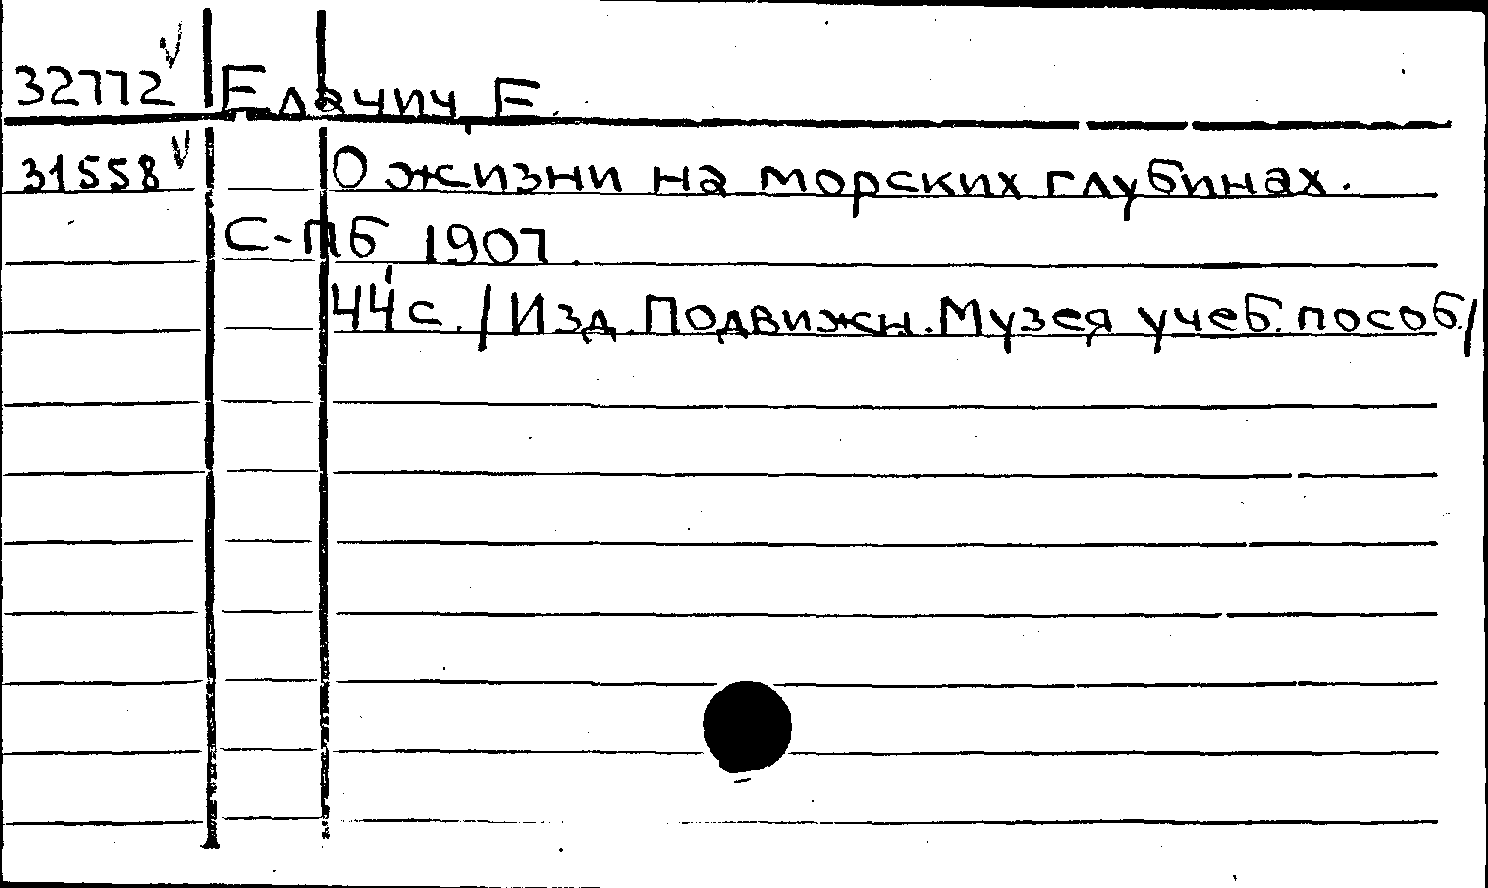 32772 Елачич, Е.
31558 О жизни на морских глубинах.
С-ПБ 1907.
44 с. /Изд. Подвижн. Музея учеб. пособ./